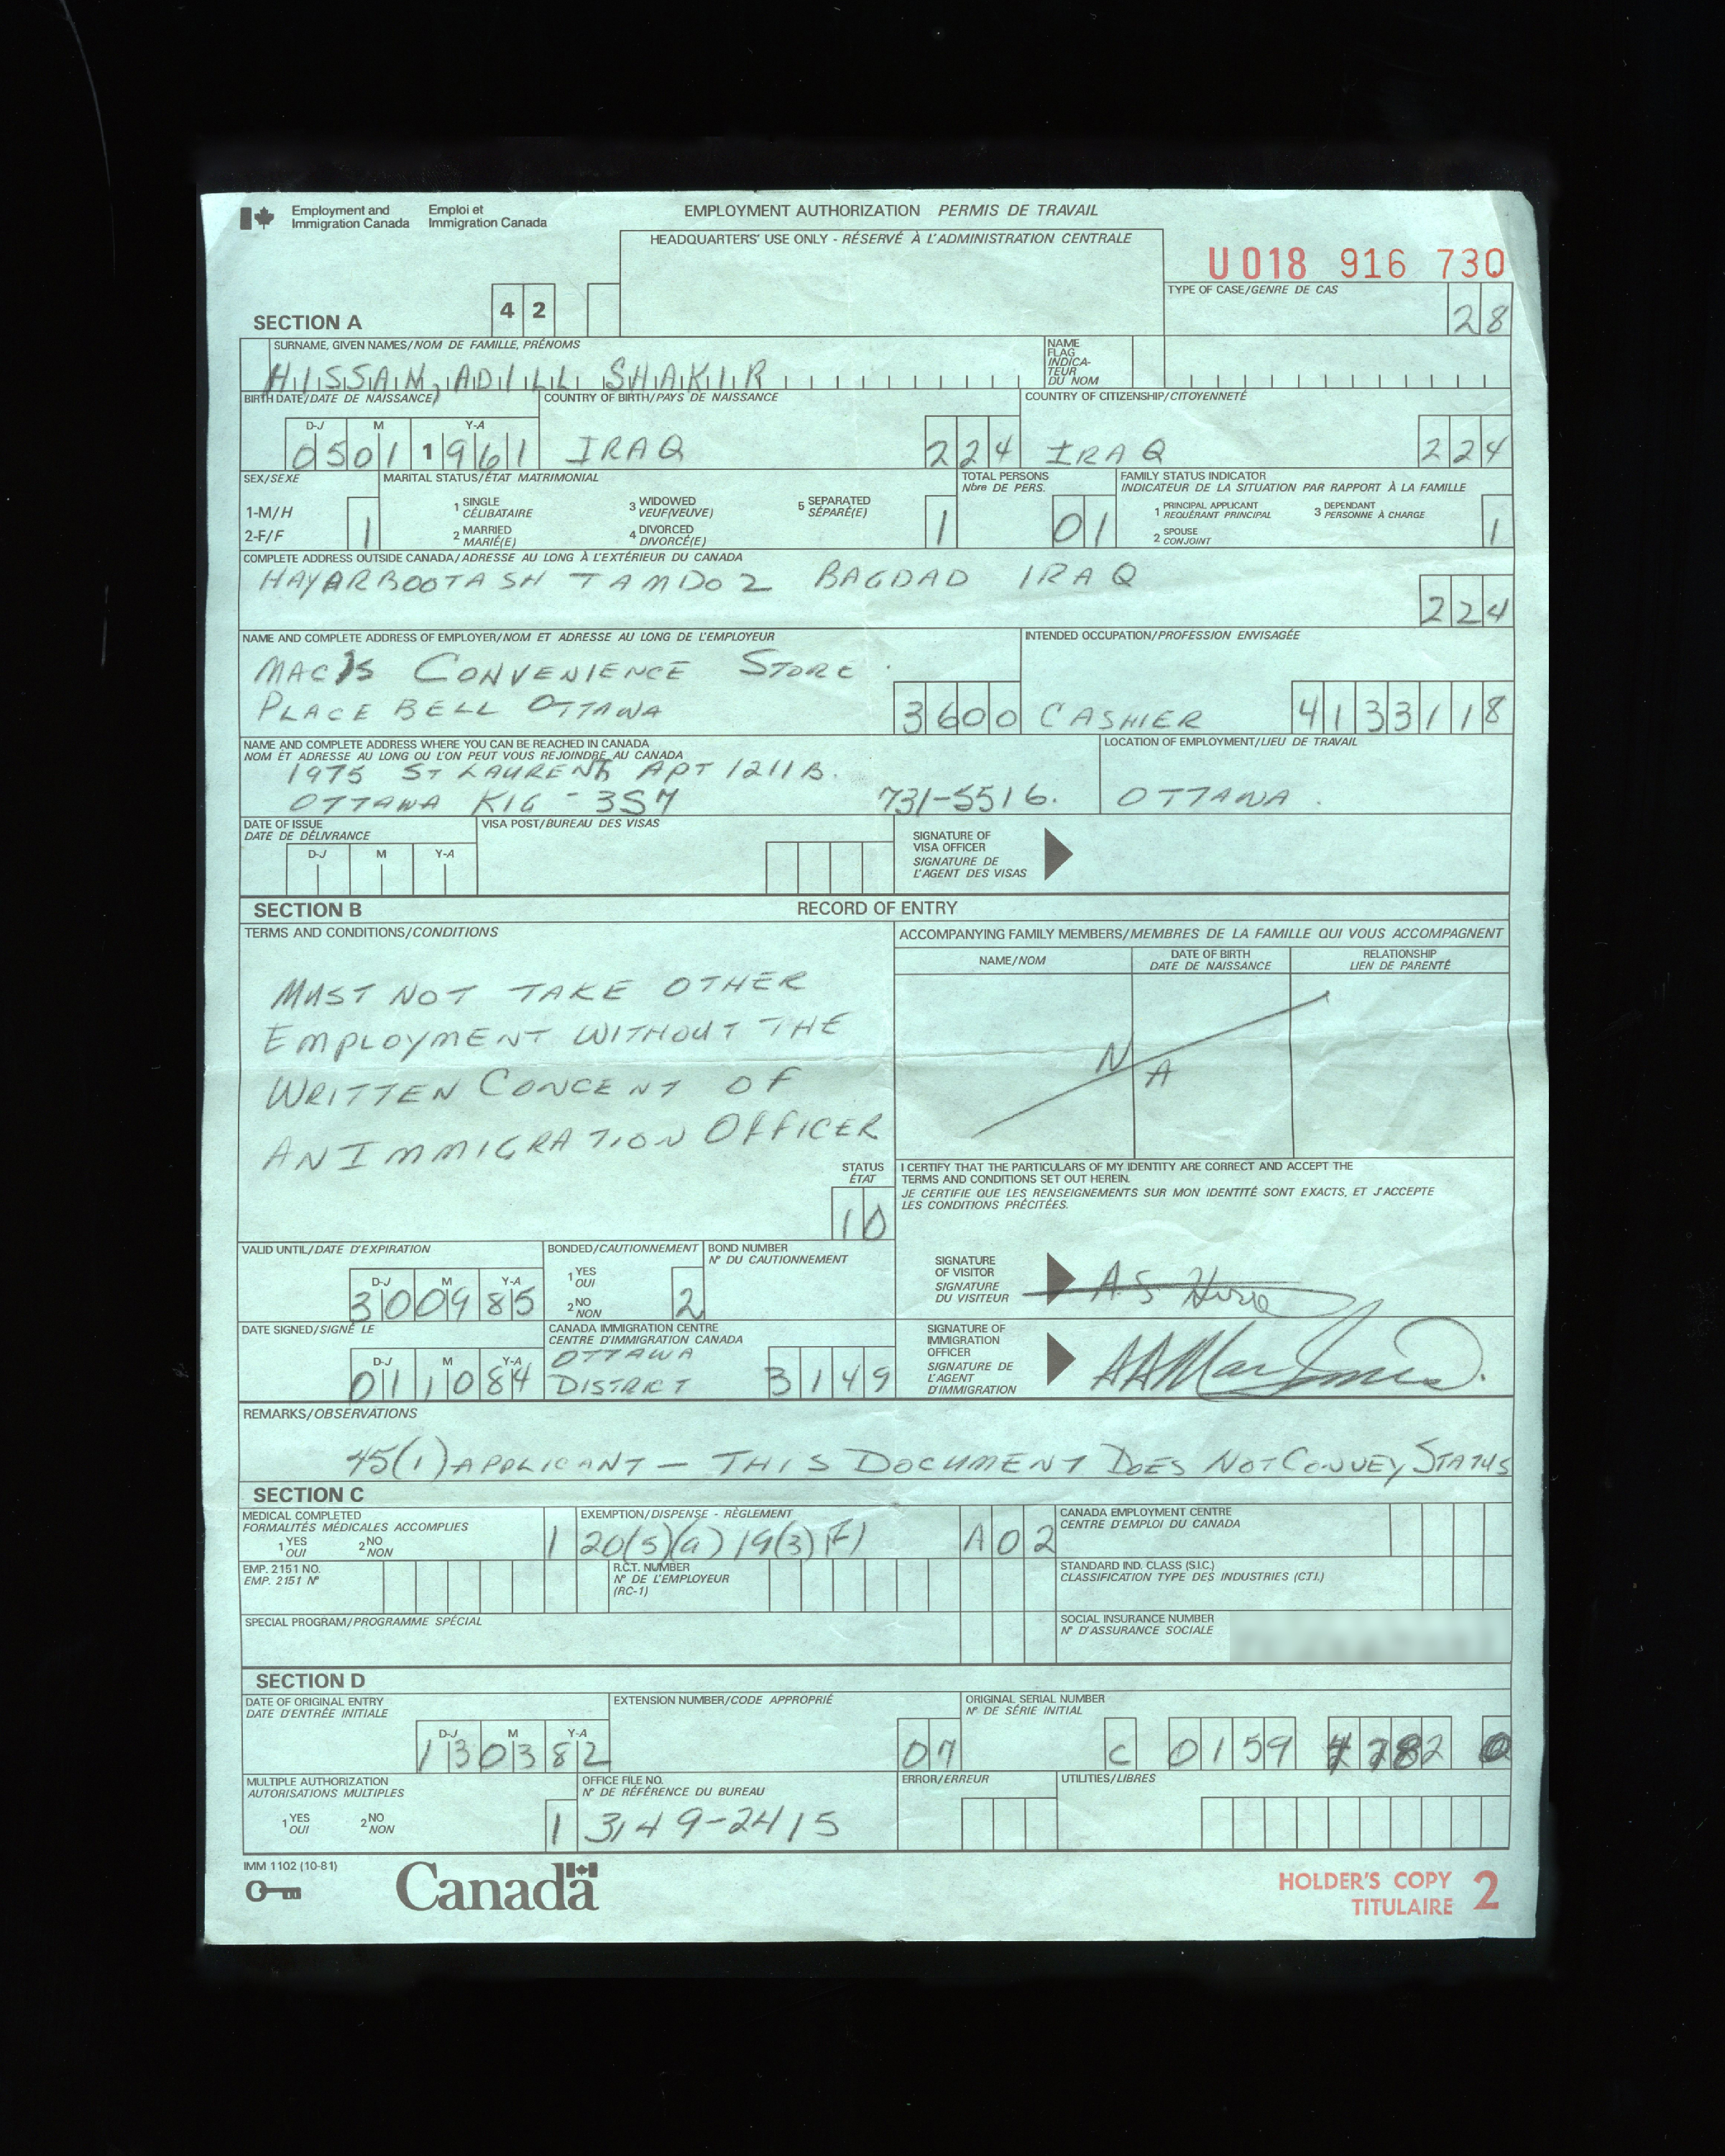 Employment and Immigration Canada
Emploi et Immigration Canada
EMPLOYMENT AUTHORIZATION PERMIS DE TRAVAIL
HEADQUARTERS' USE ONLY - RÉSERVÉ À L'ADMINISTRATION CENTRALE
U018 916 730
TYPE OF CASE/GENRE DE CAS
28
SECTION A
42
SURNAME, GIVEN NAMES/NOM DE FAMILLE, PRÉNOMS
HISSAN, ADILL SHAKIR
NAME FLAG INDICA-TEUR DU NOM
BIRTH DATE/DATE DE NAISSANCE
D-J M Y-A
0501 1961
COUNTRY OF BIRTH/PAYS DE NAISSANCE
IRAQ 224
COUNTRY OF CITIZENSHIP/CITOYENNETÉ
IRAQ 224
SEX/SEXE
1-M/H
2-F/F
1
MARITAL STATUS/ÉTAT MATRIMONIAL
1 SINGLE CÉLIBATAIRE
3 WIDOWED VEUF(VEUVE)
5 SEPARATED SÉPARÉ(E)
2 MARRIED MARIÉ(E)
4 DIVORCED DIVORCÉ(E)
1
TOTAL PERSONS
Nbre DE PERS.
01
FAMILY STATUS INDICATOR
INDICATEUR DE LA SITUATION PAR RAPPORT À LA FAMILLE
1 PRINCIPAL APPLICANT REQUÉRANT PRINCIPAL
3 DEPENDANT PERSONNE À CHARGE
2 SPOUSE CONJOINT
1
COMPLETE ADDRESS OUTSIDE CANADA/ADRESSE AU LONG À L'EXTÉRIEUR DU CANADA
HAYARBOOTASH TAMDOZ BAGDAD IRAQ
224
NAME AND COMPLETE ADDRESS OF EMPLOYER/NOM ET ADRESSE AU LONG DE L'EMPLOYEUR
MAC'S CONVENIENCE STORE
PLACE BELL OTTAWA
3600
INTENDED OCCUPATION/PROFESSION ENVISAGÉE
CASHIER 4133118
NAME AND COMPLETE ADDRESS WHERE YOU CAN BE REACHED IN CANADA
NOM ET ADRESSE AU LONG OU L'ON PEUT VOUS REJOINDRE AU CANADA
1975 ST LAURENT APT 1211B.
OTTAWA K1G-3S7 731-5516.
LOCATION OF EMPLOYMENT/LIEU DE TRAVAIL
OTTAWA.
DATE OF ISSUE
DATE DE DÉLIVRANCE
D-J M Y-A
VISA POST/BUREAU DES VISAS
SIGNATURE OF VISA OFFICER
SIGNATURE DE L'AGENT DES VISAS
SECTION B
RECORD OF ENTRY
TERMS AND CONDITIONS/CONDITIONS
MUST NOT TAKE OTHER
EMPLOYMENT WITHOUT THE
WRITTEN CONCENT OF
AN IMMIGRATION OFFICER
ACCOMPANYING FAMILY MEMBERS/MEMBRES DE LA FAMILLE QUI VOUS ACCOMPAGNENT
NAME/NOM
DATE OF BIRTH DATE DE NAISSANCE
RELATIONSHIP LIEN DE PARENTÉ
N/A
STATUS ÉTAT
10
I CERTIFY THAT THE PARTICULARS OF MY IDENTITY ARE CORRECT AND ACCEPT THE
TERMS AND CONDITIONS SET OUT HEREIN.
JE CERTIFIE QUE LES RENSEIGNEMENTS SUR MON IDENTITÉ SONT EXACTS, ET J'ACCEPTE
LES CONDITIONS PRÉCITÉES.
VALID UNTIL/DATE D'EXPIRATION
D-J M Y-A
300985
BONDED/CAUTIONNEMENT
1 YES OUI
2 NO NON
2
BOND NUMBER
N° DU CAUTIONNEMENT
SIGNATURE OF VISITOR
SIGNATURE DU VISITEUR
A.S.
DATE SIGNED/SIGNÉ LE
D-J M Y-A
011084
CANADA IMMIGRATION CENTRE
CENTRE D'IMMIGRATION CANADA
OTTAWA
DISTRICT 3149
SIGNATURE OF IMMIGRATION OFFICER
SIGNATURE DE L'AGENT D'IMMIGRATION
REMARKS/OBSERVATIONS
45(1) APPLICANT - THIS DOCUMENT DOES NOT CONVEY STATUS
SECTION C
MEDICAL COMPLETED
FORMALITÉS MÉDICALES ACCOMPLIES
1 YES OUI
2 NO NON
1
EXEMPTION/DISPENSE - RÈGLEMENT
20(5)(a) 19(3)(F) A02
CANADA EMPLOYMENT CENTRE
CENTRE D'EMPLOI DU CANADA
EMP. 2151 NO.
EMP. 2151 N°
R.C.T. NUMBER
N° DE L'EMPLOYEUR
(RC-1)
STANDARD IND. CLASS (S.I.C.)
CLASSIFICATION TYPE DES INDUSTRIES (C.T.I.)
SPECIAL PROGRAM/PROGRAMME SPÉCIAL
SOCIAL INSURANCE NUMBER
N° D'ASSURANCE SOCIALE
SECTION D
DATE OF ORIGINAL ENTRY
DATE D'ENTRÉE INITIALE
D-J M Y-A
130382
EXTENSION NUMBER/CODE APPROPRIÉ
07
ORIGINAL SERIAL NUMBER
N° DE SÉRIE INITIAL
C 0159 7782 0
MULTIPLE AUTHORIZATION
AUTORISATIONS MULTIPLES
1 YES OUI
2 NO NON
1
OFFICE FILE NO.
N° DE RÉFÉRENCE DU BUREAU
3149-2415
ERROR/ERREUR
UTILITIES/LIBRES
IMM 1102 (10-81)
Canada
HOLDER'S COPY 2
TITULAIRE